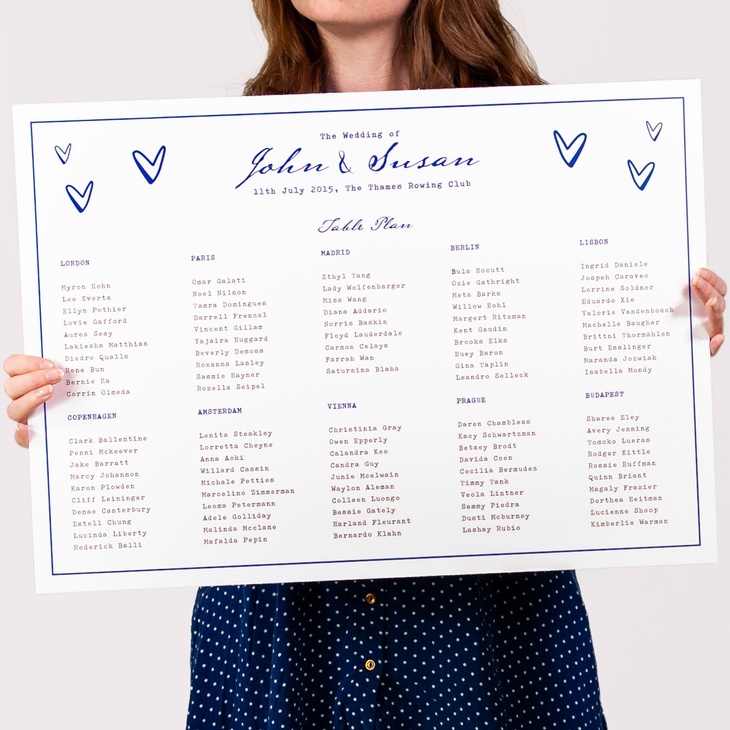 The Wedding of
John & Susan
11th July 2015, The Thames Rowing Club
Table Plan
LONDON
Myron Hohn
Lee Everts
Ellyn Pothier
Lovie Gafford
Aurea Seay
Lakiesha Matthias
Diedre Qualls
Rene Bun
Bernie Ha
Corrin Olmeda
PARIS
Omar Galati
Noel Nilson
Tamra Domingues
Darrell Frennel
Vincent Gillam
Yajaira Huggard
Beverly Demoss
Roxanna Lasley
Sammie Hayner
Rozella Seipel
MADRID
Ethyl Tang
Lady Wolfenbarger
Miss Wang
Diana Addario
Norris Baskin
Floyd Lauderdale
Carmon Celaya
Farrah Wan
Saturnina Blaha
BERLIN
Bula Hocutt
Ozie Gathright
Meta Barks
Willow Hohl
Margert Ritzman
Kent Gaudin
Brooks Elks
Huey Baron
Gina Yaplin
Leandro Selleck
LISBON
Ingrid Daniele
Jospeh Caraveo
Lorrine Soldner
Eduardo Xie
Valorie Vandenbosch
Machelle Baugher
Brittni Thormahlen
Burt Esslinger
Maranda Jozwiak
Isabella Mondy
COPENHAGEN
Clark Ballentine
Penni Mckeever
Jake Barratt
Marcy Johanson
Karon Plowden
Cliff Leininger
Denae Canterbury
Estell Chung
Lucinda Liberty
Roderick Balli
AMSTERDAM
Lenita Steakley
Lorretta Cheyne
Anna Aoki
Willard Cassin
Michale Petties
Marcelino Zimmerman
Leoma Petermann
Adele Golliday
Malinda Mcclane
Mafalda Pepin
VIENNA
Christinia Gray
Owen Epperly
Calandra Keo
Candra Guy
Junie Mcelwain
Waylon Aleman
Colleen Luongo
Bessie Gately
Harland Fleurant
Bernardo Klahn
PRAGUE
Daren Chamblean
Kacy Schwartzman
Betsey Brodt
Davida Coen
Cecilia Bermudes
Timmy Tank
Veola Lintner
Sammy Piedra
Dusti Mcburney
Lashay Rubio
BUDAPEST
Sharee Eley
Avery Jenning
Tomoko Lueras
Rodger Kittle
Rossie Huffman
Quinn Briest
Magaly Frazier
Dorthea Heitman
Lucienne Shoop
Kimberlie Warman